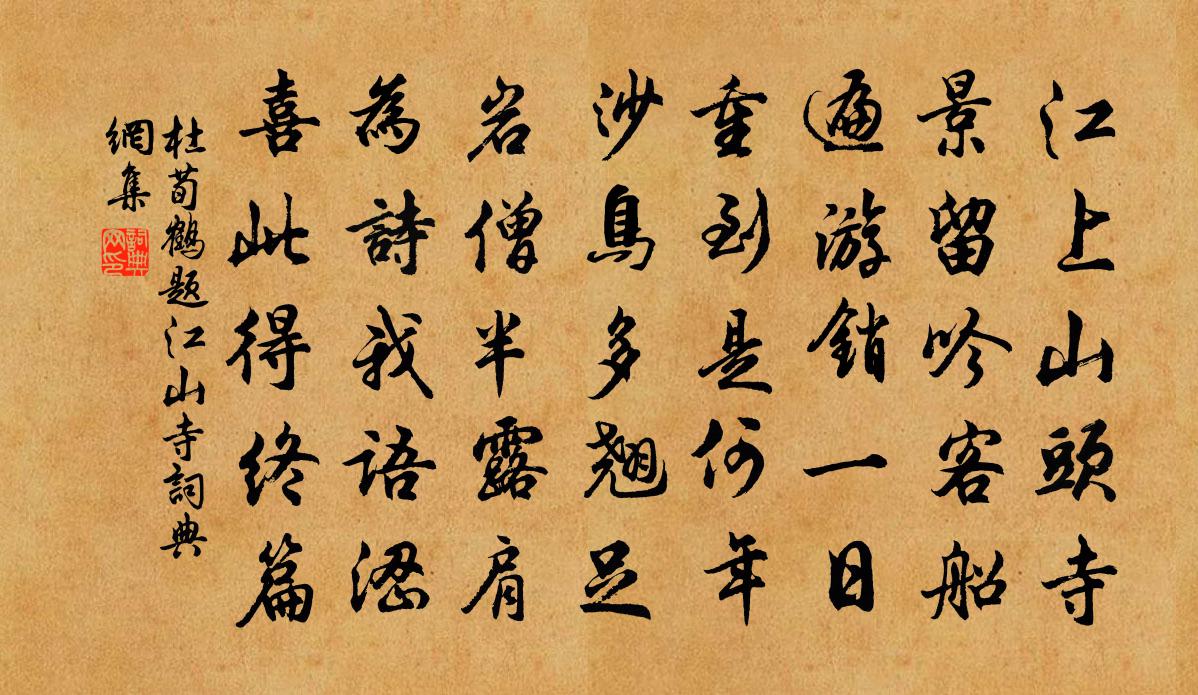 江上山頭寺
景留吟客船
遍游銷一日
重到是何年
沙鳥多翹足
岩僧半露肩
為詩我語涩
喜此得終篇
杜荀鶴題江山寺詞典
網集
詞典
网印